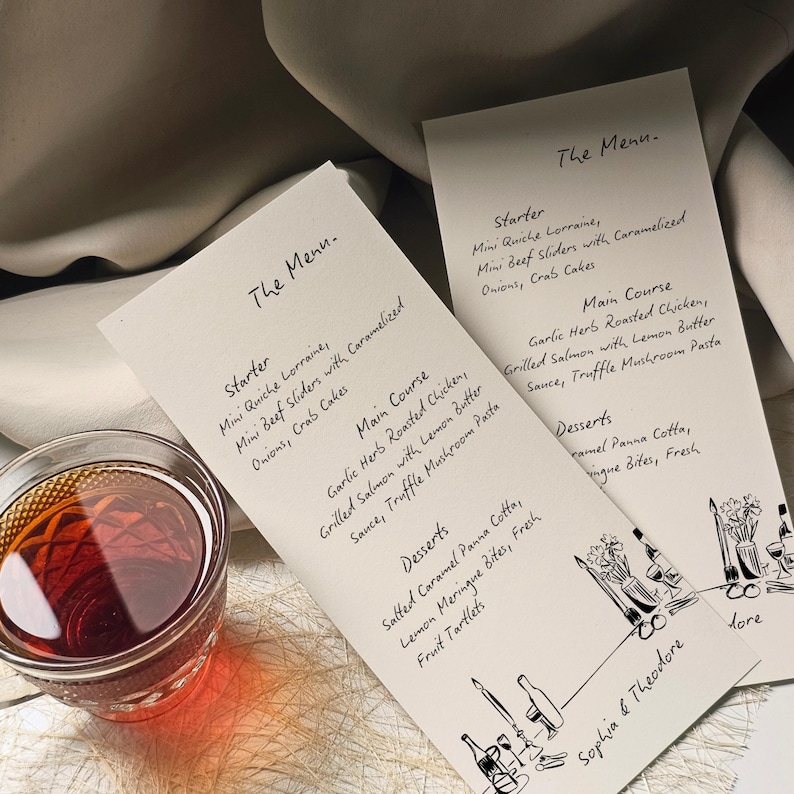 The Menu.
Starter
Mini Quiche Lorraine,
Mini Beef Sliders with Caramelized
Onions, Crab Cakes
Main Course
Garlic Herb Roasted Chicken,
Grilled Salmon with Lemon Butter
Sauce, Truffle Mushroom Pasta
Desserts
Salted Caramel Panna Cotta,
Lemon Meringue Bites, Fresh
Fruit Tartlets
Sophia & Theodore
The Menu.
Starter
Mini Quiche Lorraine,
Mini Beef Sliders with Caramelized
Onions, Crab Cakes
Main Course
Garlic Herb Roasted Chicken,
Grilled Salmon with Lemon Butter
Sauce, Truffle Mushroom Pasta
Desserts
aramel Panna Cotta,
ringue Bites, Fresh
s
dore